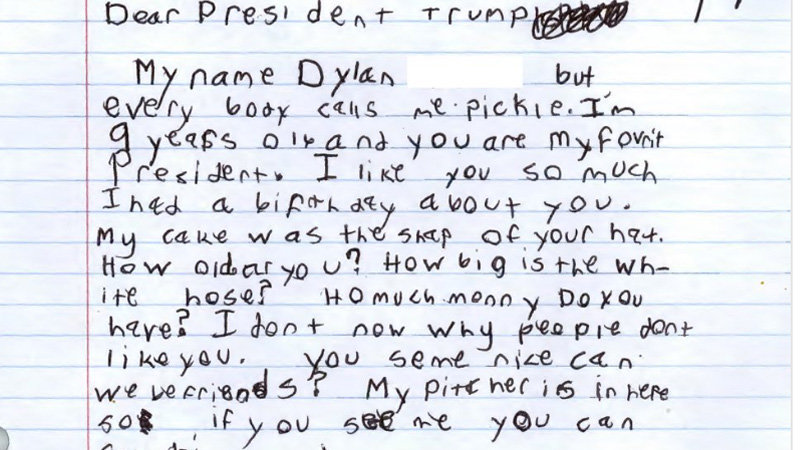 Dear President Trump
My name Dylan but
every body calls me pickle. I'm
9 years old and you are my fovrit
President. I like you so much
I had a birfthday about you.
My cake was the shap of your hat.
How old ar you? How big is the wh-
ite hose? Ho much monny Do you
have? I dont now why people dont
like you. You seme nice can
we be friends? My pitcher is in here
so if you see me you can